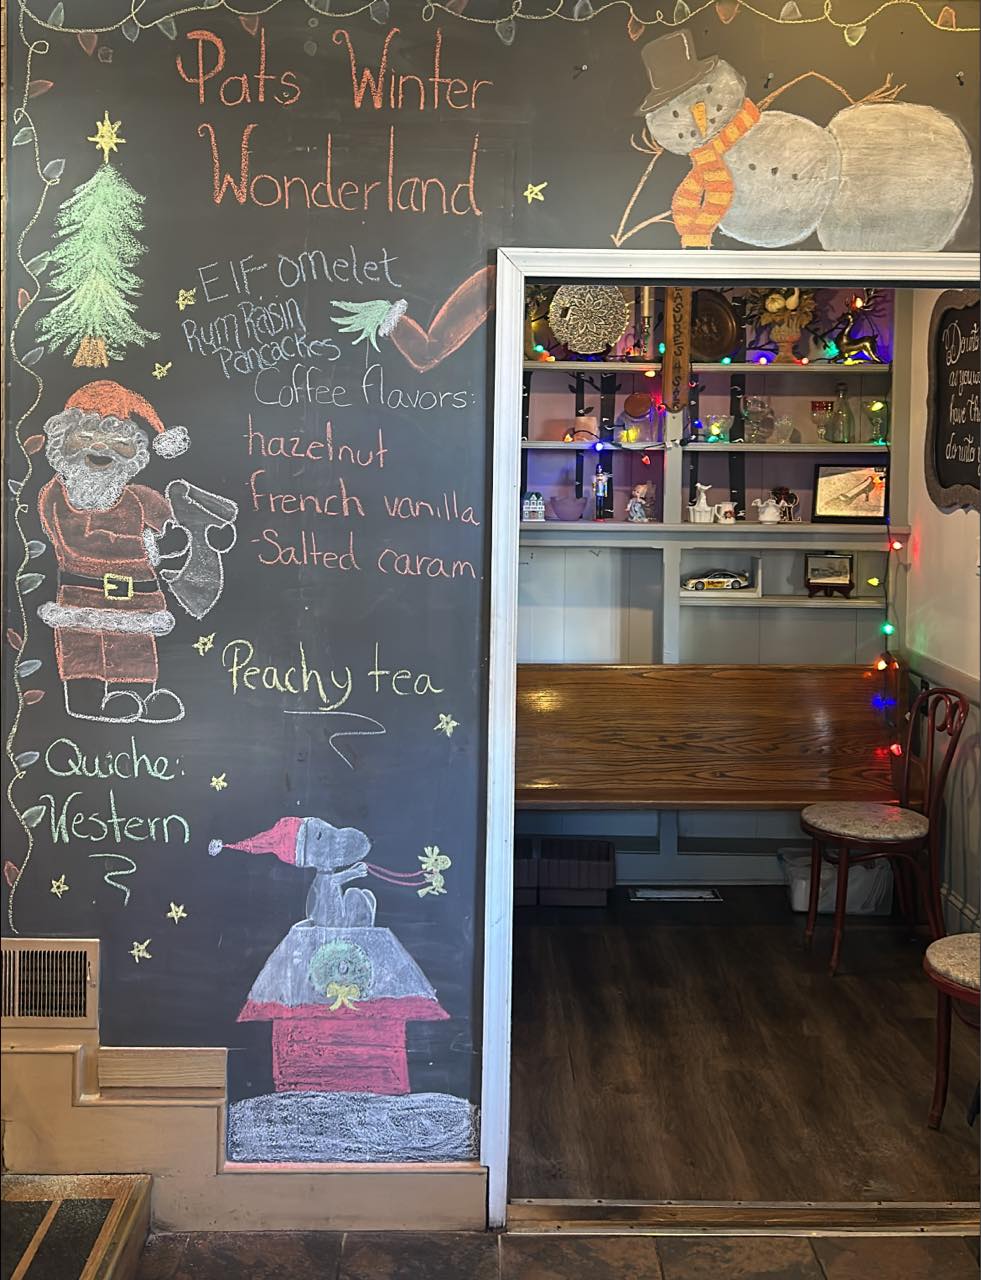 Pats Winter
Wonderland
Elf omelet
Rum Raisin
Pancackes
Coffee flavors:
hazelnut
french vanilla
-Salted caram.
Peachy tea
Quiche:
Western